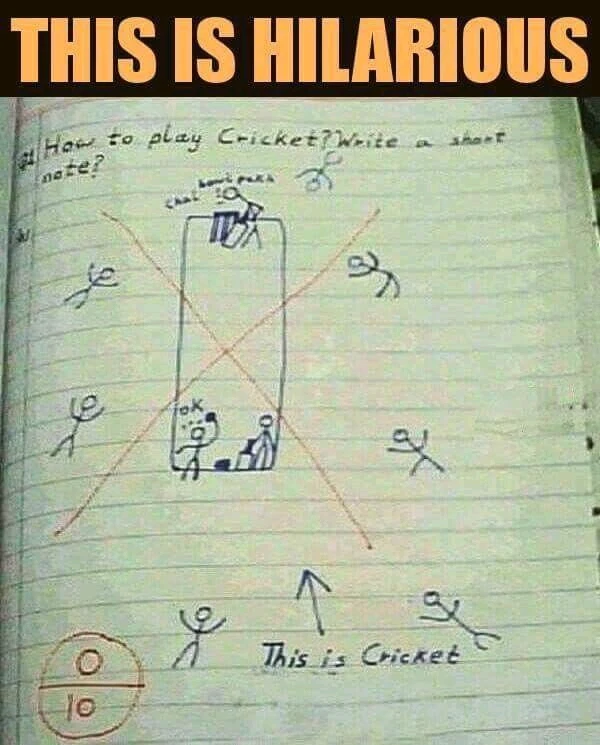 THIS IS HILARIOUS
How to play Cricket? Write a short
note?
Chal
ok
This is Cricket
0
10